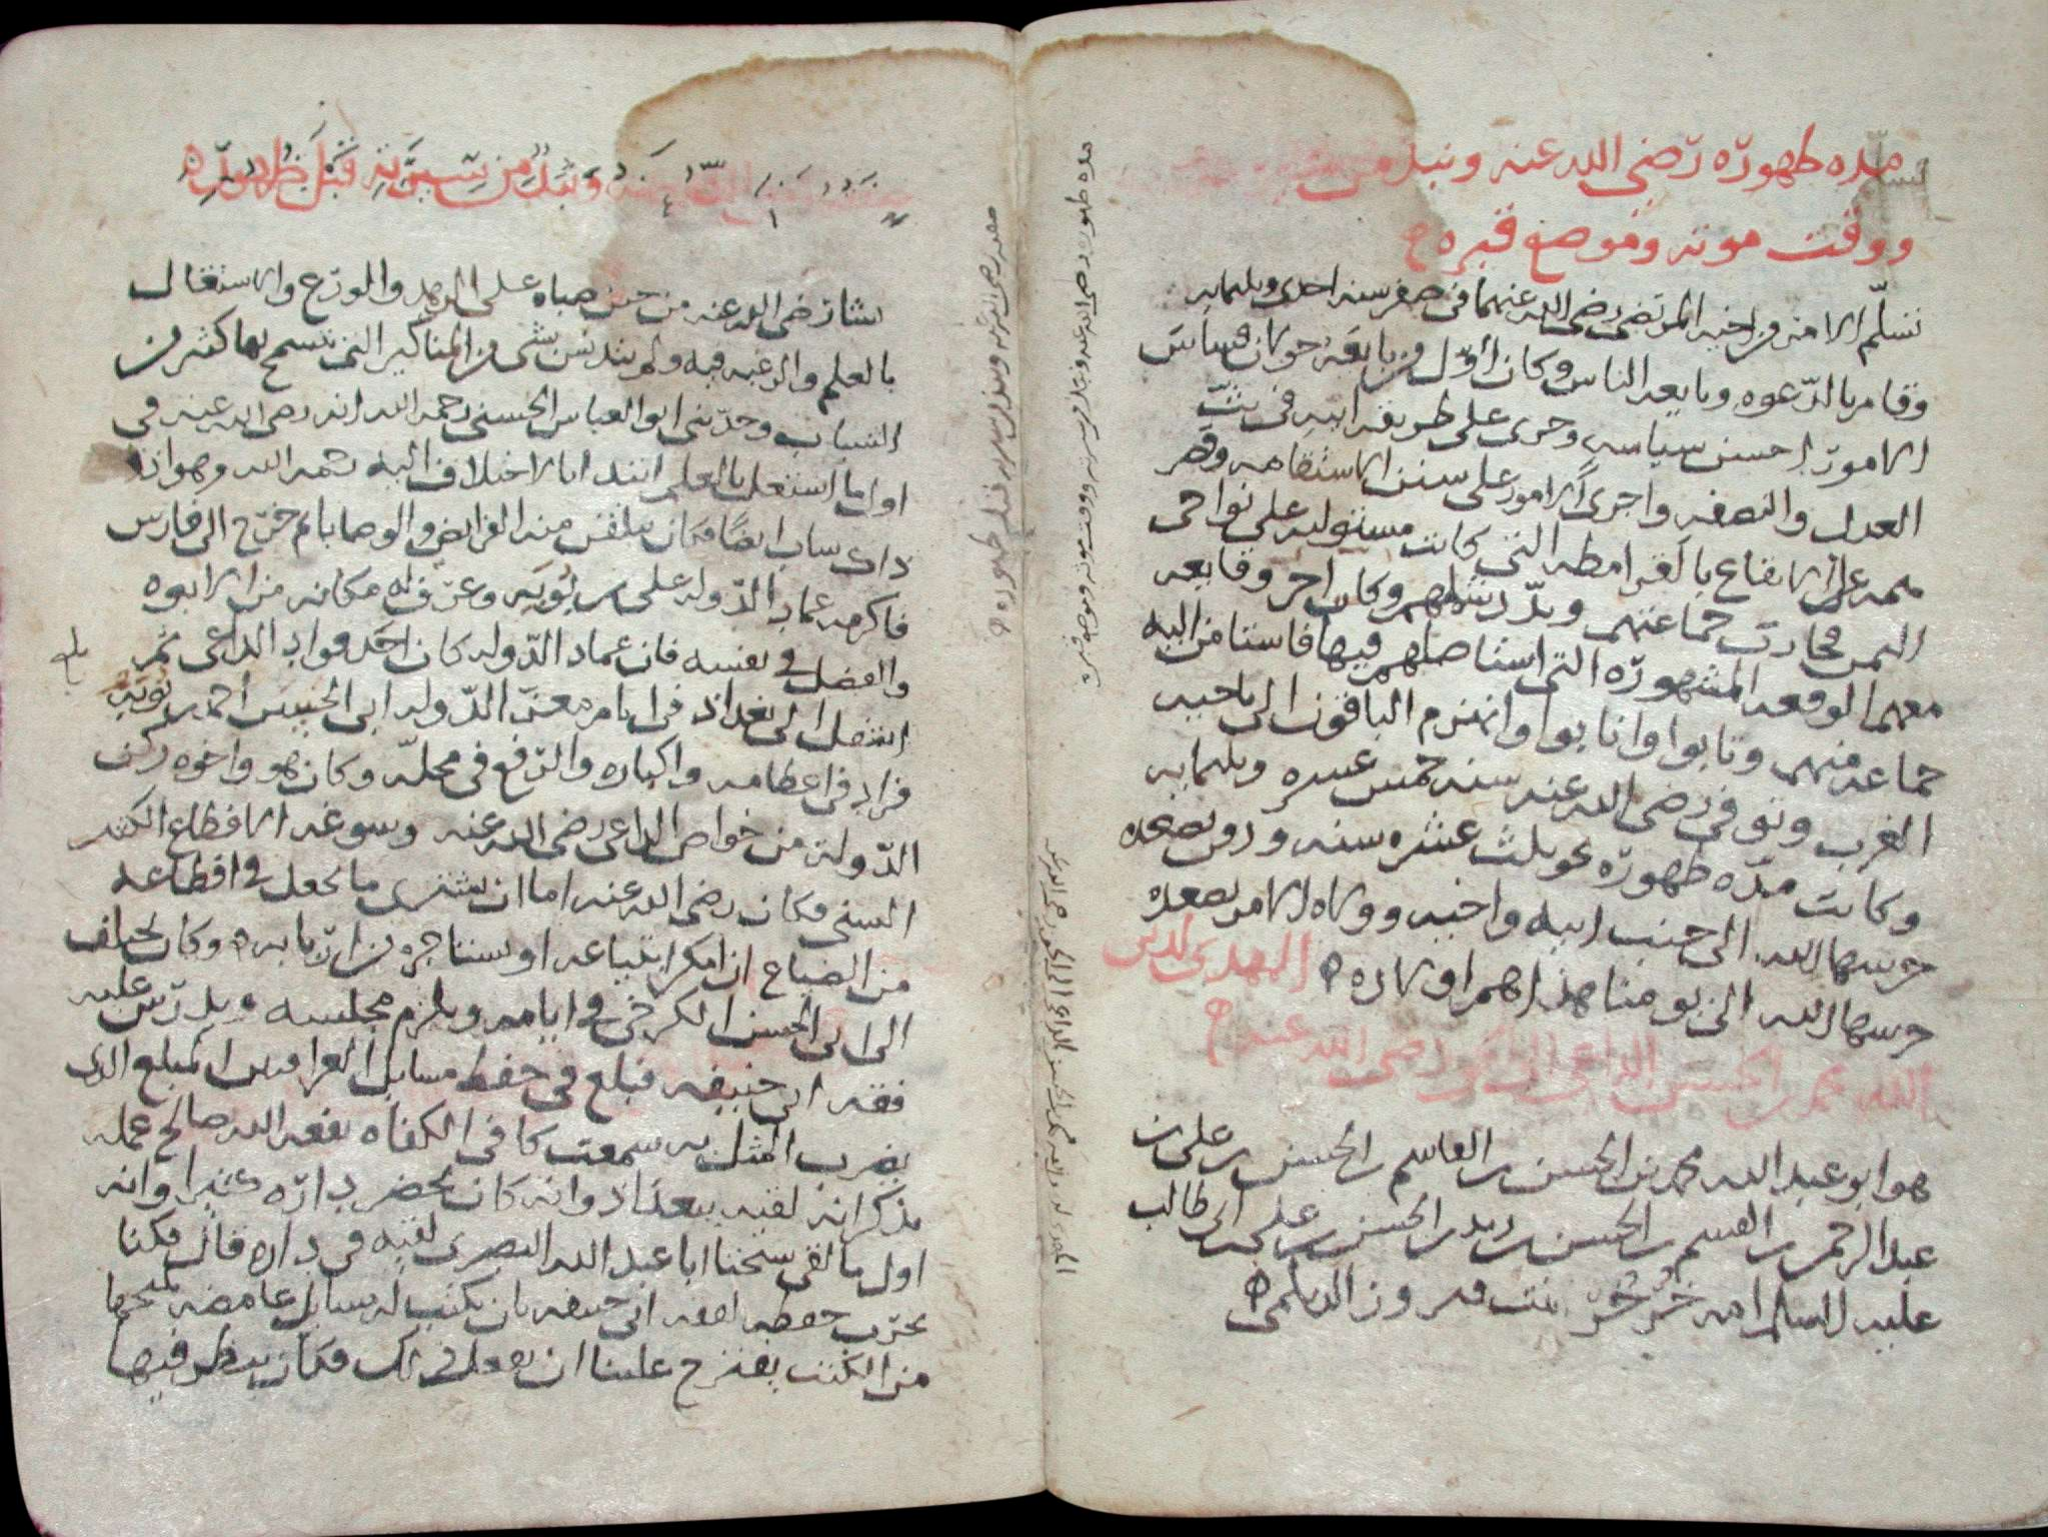 مده طهوره رضي الله عنه ونبذ من
ووقت موته وموضع قبره
تسلم الامر من اخيه المرتضى رضي الله عنهما في صفر سنه احدى وثلثمايه
وقام بالدعوه وبايعه الناس وكان اول من بايعه خولان فساس
الامور احسن سياسه وجرى على طريقه ابيه في بث
العدل والنصفه واجرى الامور على سنن الاستقامه وقصر
همه على الايقاع بالقرامطه التي كانت مستوليه على نواحي
اليمن فحارب جماعتهم وبدد شملهم وكان اخر وقايعه
معهم الوقعه المشهوره التي استاصلهم فيها فاستامن اليه
جماعه منهم وتابوا وانابوا وانهزم الباقون الى ناحيه
الغرب وتوفي رضي الله عنه سنه خمس عشره وثلثمايه
وكانت مده ظهوره نحو ثلث عشره سنه ودفن بصعده
حرسها الله الى جنب ابيه واخيه وولاه الامر بصعده
حرسها الله الى يومنا هذا هم اولاده المهدي لدين
الله محمد بن الحسن الداعي الى الحق رضي الله عنه
هو ابو عبد الله محمد بن الحسن بن القاسم بن الحسن بن علي بن
عبد الرحمن بن القسم بن الحسن بن زيد بن الحسن بن علي بن ابي طالب
عليه السلام امه بنت فيروز الديلمي
مده ظهوره رضي الله عنه ونبذ من سيرته ووقت موته وموضع قبره
ونبذ من سيرته قبل ظهوره
نشا رضي الله عنه من حين صباه على الزهد والورع والاشتغال
بالعلم والرغبه فيه ولم يتدنس بشي من المناكير التي تسمح بها كثير من
الشباب وحدثني ابو العباس الحسني رحمه الله انه رضي الله عنه في
اول ما اشتغل بالعلم ابتدا بالاختلاف اليه رحمه الله وهو اذ
ذاك شاب ايضا فكان يتلقن منه الفرايض والوصايا ثم خرج الى فارس
فاكرمه عماد الدوله علي بن بويه وعرف له مكانه من الابوه
والفضل في نفسه فان عماد الدوله كان احد قواد الداعي ثم
انتقل الى بغداذ في ايام معز الدوله ابي الحسين احمد بن بويه
فزاد في اعظامه واكباره والرفع في محله وكان هو واخوه ركن
الدوله من خواص الداعي رضي الله عنه وسوغه الاقطاع الكثير
السني فكان رضي الله عنه اما ان يشتري ما يجعل في اقطاعه
من الضياع ان امكن ابتياعه او يستاجره من اربابه وكان يختلف
الى ابي الحسن الكرخي في ايامه ويلزم مجلسه ويدرس عليه
فقه ابي حنيفه فبلغ في حفظ مسايل العراقيين المبلغ الذي
يضرب المثل به سمعت كافي الكفاه نفعه الله صالح عمله
يذكر انه لقيه ببغداذ وانه كان يحضر داره كثيرا وانه
اول ما لقي شيخنا ابا عبد الله البصري لقيه في داره قال فكنا
نجرب حفظه لفقه ابي حنيفه بان نكتب له مسايل غامضه
من الكتب يقترح علينا ان نفعل ذلك فكان ينظر فيها